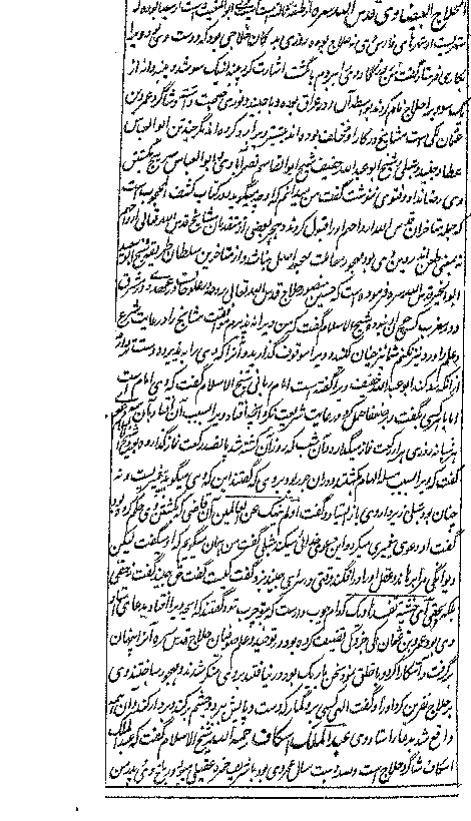 الحلاج البیضاوی قدس الله سره از طبقه ثالثه است
شهریست از شهرهای فارس وی نه حلاج بوده روزی به دکان حلاجی بود که دوست وی بود ویرا
بکاری فرستاد گفت من روزگار وی ببردم بانگشت اشارت کرد پنبه یکسو شد و پنبه دانه از
یکسو ویرا حلاج نام کردند بواسطه آن و در عراق بوده و با جنید و نوری صحبت داشته و شاگرد عمرو بن
عثمان مکی است مشایخ در کار او مختلف بوده‌اند بیشتر ویرا رد کرده‌اند مگر چند تن ابو العباس
عطا و شبلی و شیخ ابو عبد الله خفیف و شیخ ابو القاسم نصرآبادی و ابو العباس سریج بکشتن
وی رضا نداد و فتوی ننوشت گفت من نمیدانم که او چه میگوید و در کتاب کشف المحجوب است
که جمله متأخران قدس الله ارواحهم او را قبول کرده‌اند و هجر بعضی از متقدمان مشایخ قدس الله تعالی ارواحهم
نه بمعنی طعن اندر دین وی بود مهجور معاملت مهجور اصل نباشد و از متأخرین سلطان طریقت شیخ ابو سعید
ابو الخیر قدس الله سره فرموده است که حسین منصور حلاج قدس الله تعالی روحه در علو حالست در عهد وی در مشرق
و مغرب کس چون او نبوده شیخ الاسلام گفت که من ویرا نپذیرم موافقت مشایخ را و رعایت شرع
و علم را و رد نیز نکنم شما نیز چنان کنید و ویرا موقوف گذارید و آنرا که وی را بپذیرد دوستتر دارم
از آنکه رد کند ابو عبد الله خفیف ویرا گفته است امام ربانی شیخ الاسلام گفت که وی امام است
اما با هر کسی بگفت و بر ضعفا حمل کرد و رعایت شریعت نکرد آنچه افتاد ویرا بسبب آن افتاد
هر شبانه روزی هزار رکعت نماز میگزارد و آن شب که روز آن کشته شد پانصد رکعت نماز گزارده بود و شیخ الاسلام
گفت که ویرا بسبب مسئله الهام بکشتند و در آن جور بود بر وی که گفتند این که وی میگوید پیغمبریست و نه
چنان بود شبلی زیر دار وی باز ایستاد و گفت اولم ننهک عن العالمین آن قاضی که بکشتن وی حکم کرده بود
گفت او دعوی پیغمبری میکرد و این دعوی خدائی میکند شبلی گفت من همان میگویم که او میگفت لیکن
دیوانگی مرا برهاند و عقل او را در افکند وقتی در سرای جنید بزد گفت کیست گفت حق جنید گفت نه حقی
بلکه بحقی ای خشبة تفسدها کدام چوب و دار است که بتو چرب شود گفته‌اند که آنچه ویرا افتاد بدعای استاد
وی بود عمرو بن عثمان مکی که جزوکی تصنیف کرده بود در توحید و علم صوفیان حلاج قدس سره آنرا پنهان
برگرفت و آشکارا کرد و با خلق نمود سخن باریک بود در نیافتند بر وی منکر شدند و مهجور ساختند وی
بر حلاج نفرین کرد و گفت الهی کسی بر او گمار که دست و پایش ببرد و چشم بر کند و بردار کند و آن همه
واقع شد بدعای استاد وی عبد الملک اسکاف رحمه الله شیخ الاسلام گفت که عبد الملک
اسکاف شاگرد حلاج است و صد و بیست سال عمر وی بود با شریف حمزه عقیلی ببلخ بوده و پدر من